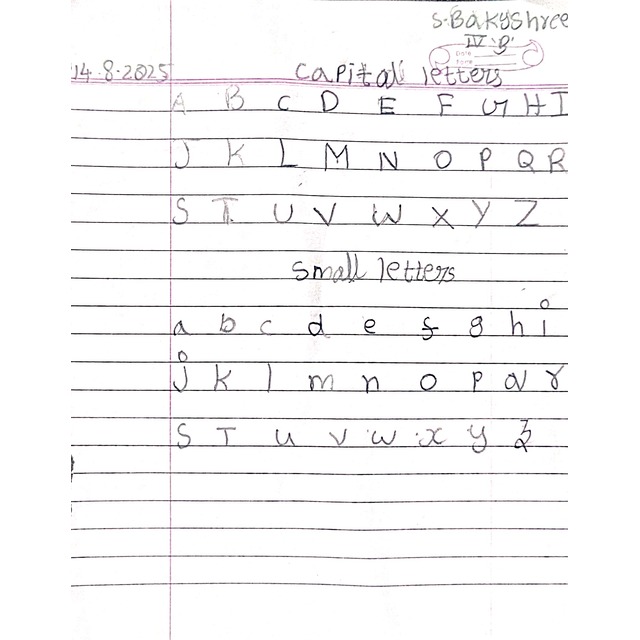 S.BakyShree
IV 'B'
Date
14.8.2025
Capital letters
A B C D E F G H I
J K L M N O P Q R
S T U V W X Y Z
Small letters
a b c d e f g h i
j k l m n o p q r
S T u v w x y z